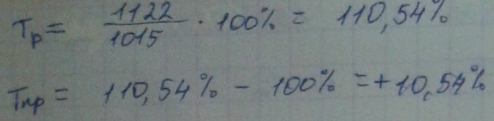 Тр = 1122/1015 · 100% = 110,54%
Тпр = 110,54% - 100% = +10,54%